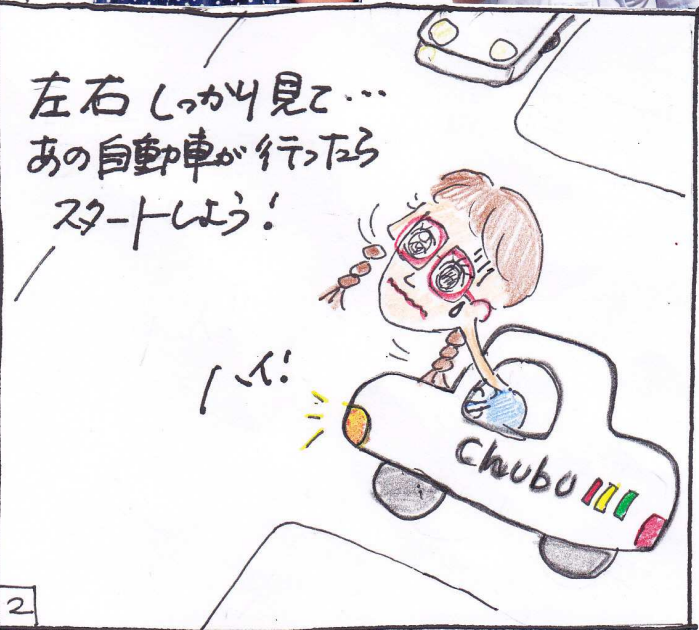 左右しっかり見て…
あの自動車が行ったら
スタートしよう!
ハイ!
Chubu
2